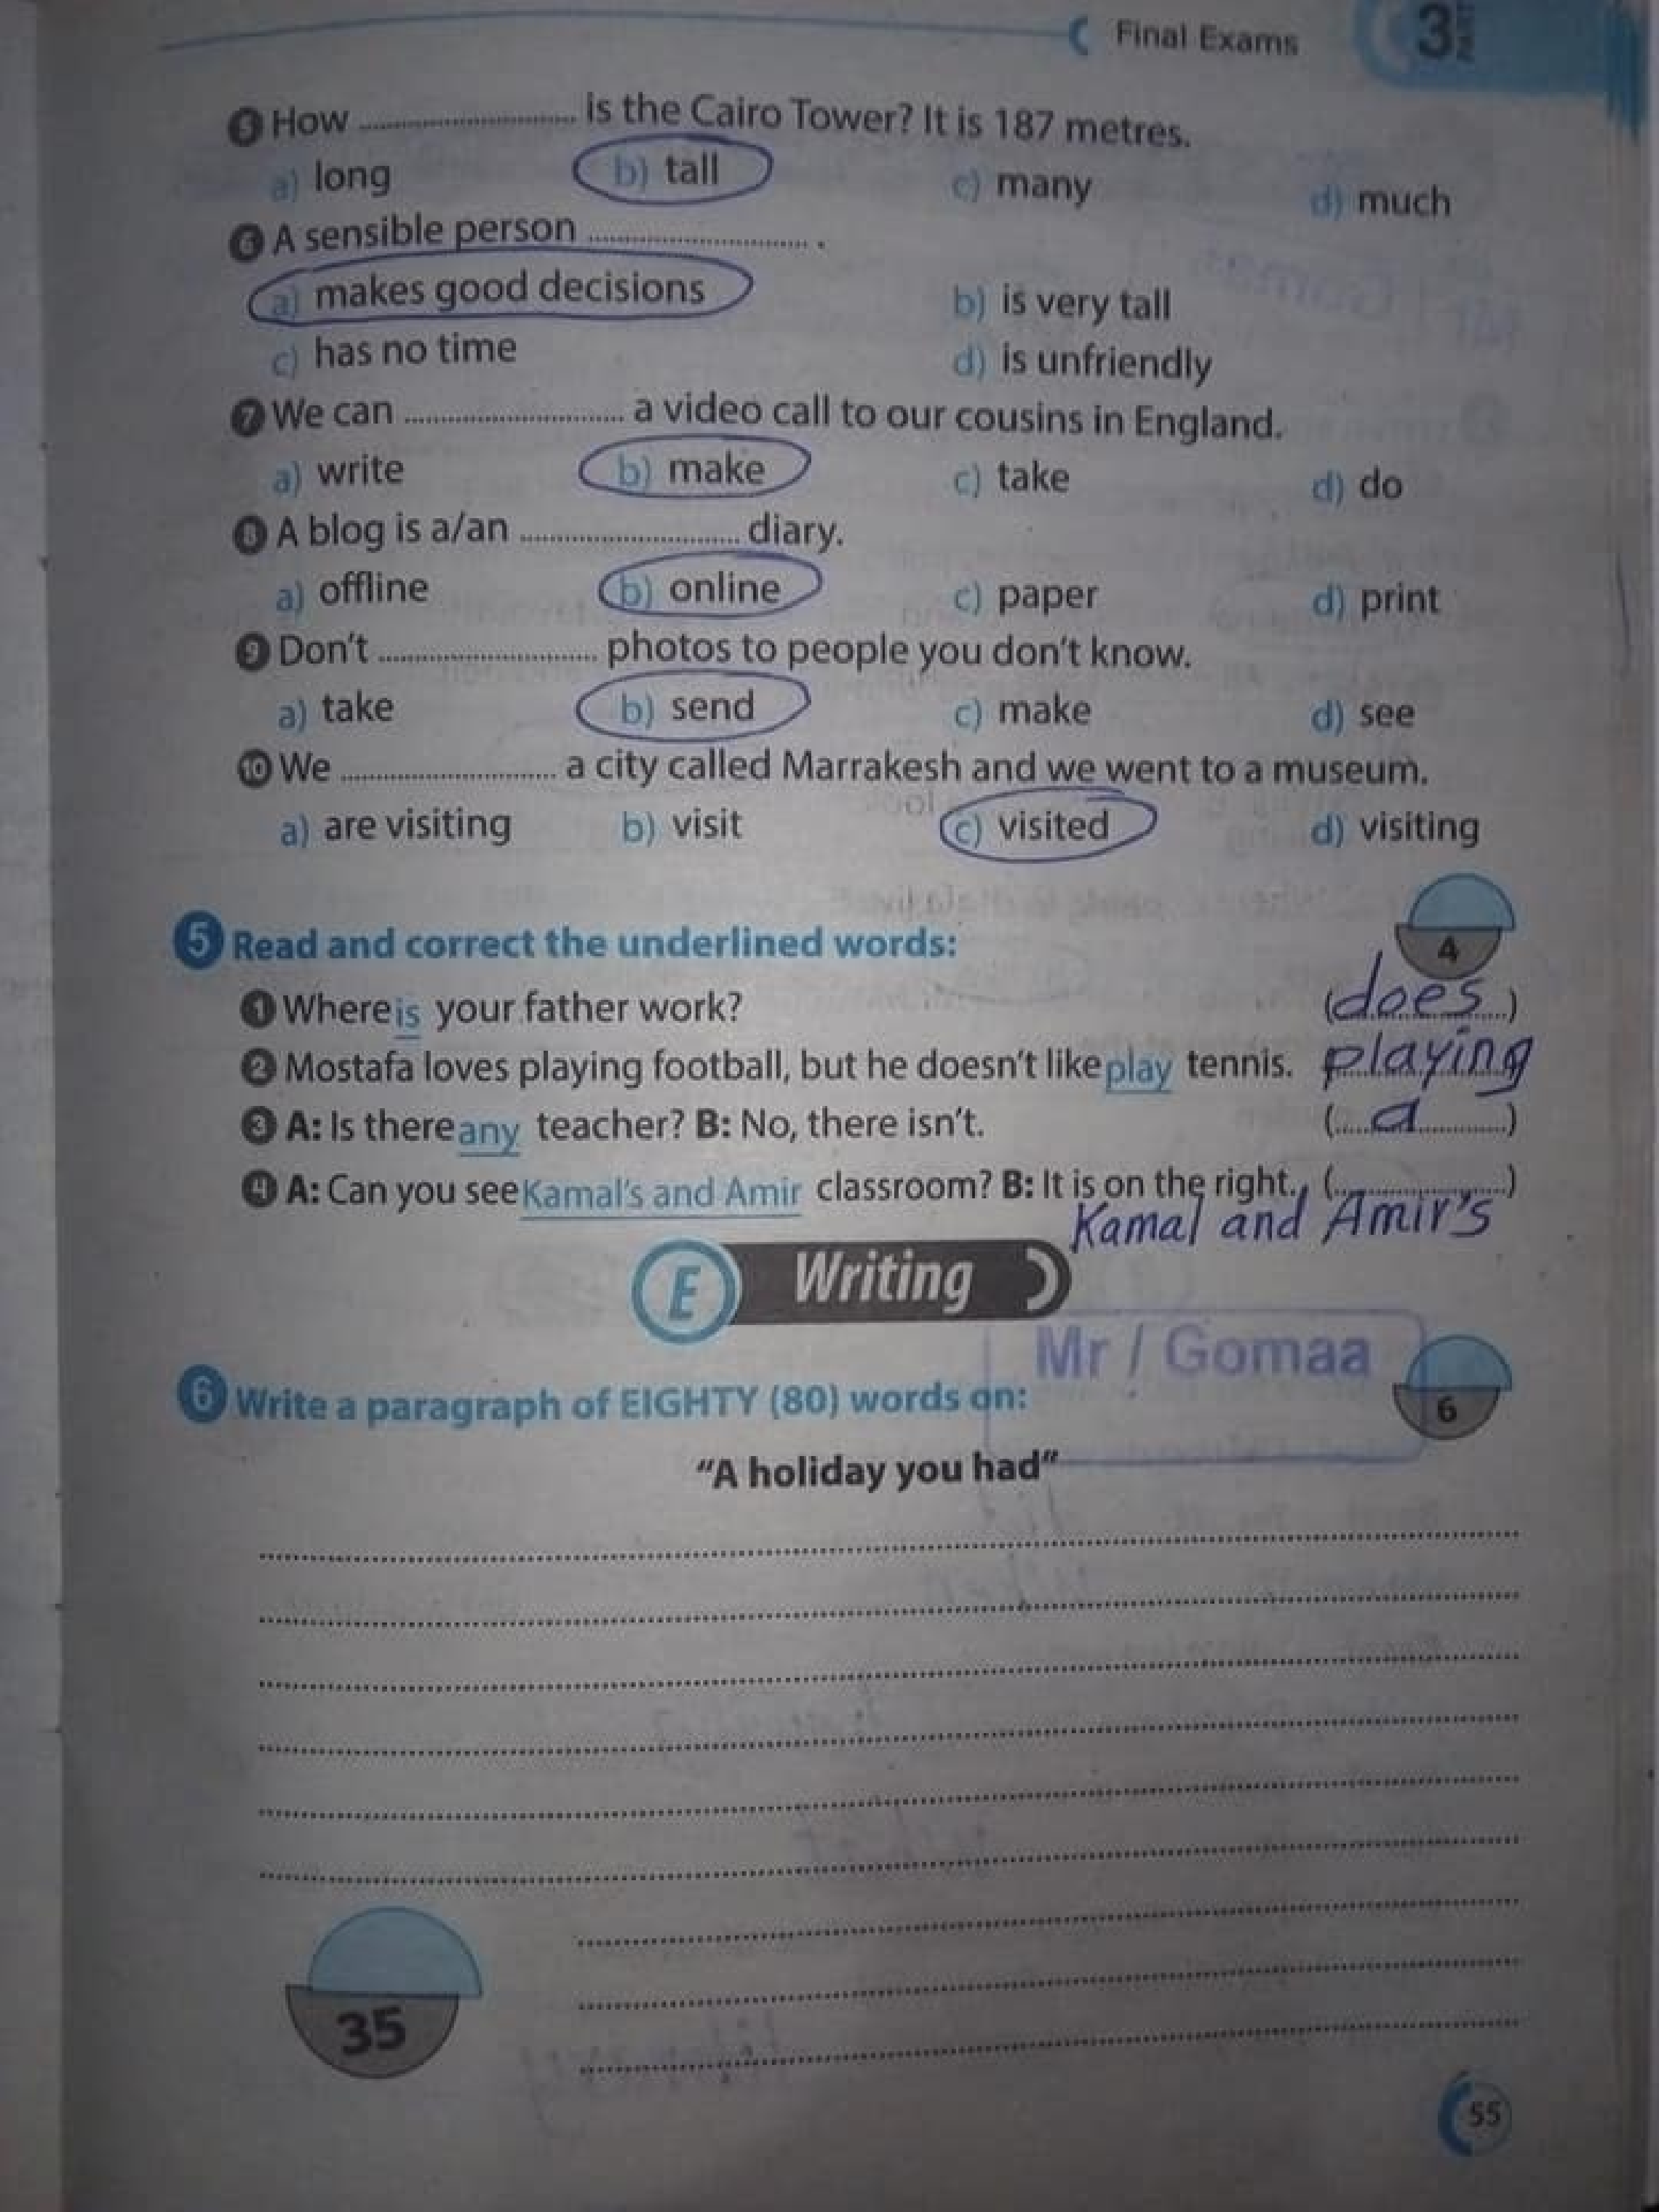 Final Exams
3
5 How ............ is the Cairo Tower? It is 187 metres.
a) long b) tall c) many d) much
6 A sensible person ............ .
a) makes good decisions b) is very tall
c) has no time d) is unfriendly
7 We can ............ a video call to our cousins in England.
a) write b) make c) take d) do
8 A blog is a/an ............ diary.
a) offline b) online c) paper d) print
9 Don't ............ photos to people you don't know.
a) take b) send c) make d) see
10 We ............ a city called Marrakesh and we went to a museum.
a) are visiting b) visit c) visited d) visiting
5 Read and correct the underlined words:
4
1 Where is your father work? (does)
2 Mostafa loves playing football, but he doesn't like play tennis. playing
3 A: Is there any teacher? B: No, there isn't. (a)
4 A: Can you see Kamal's and Amir classroom? B: It is on the right. (............)
Kamal and Amir's
E Writing
Mr / Gomaa
6 Write a paragraph of EIGHTY (80) words on:
6
"A holiday you had"
35
55